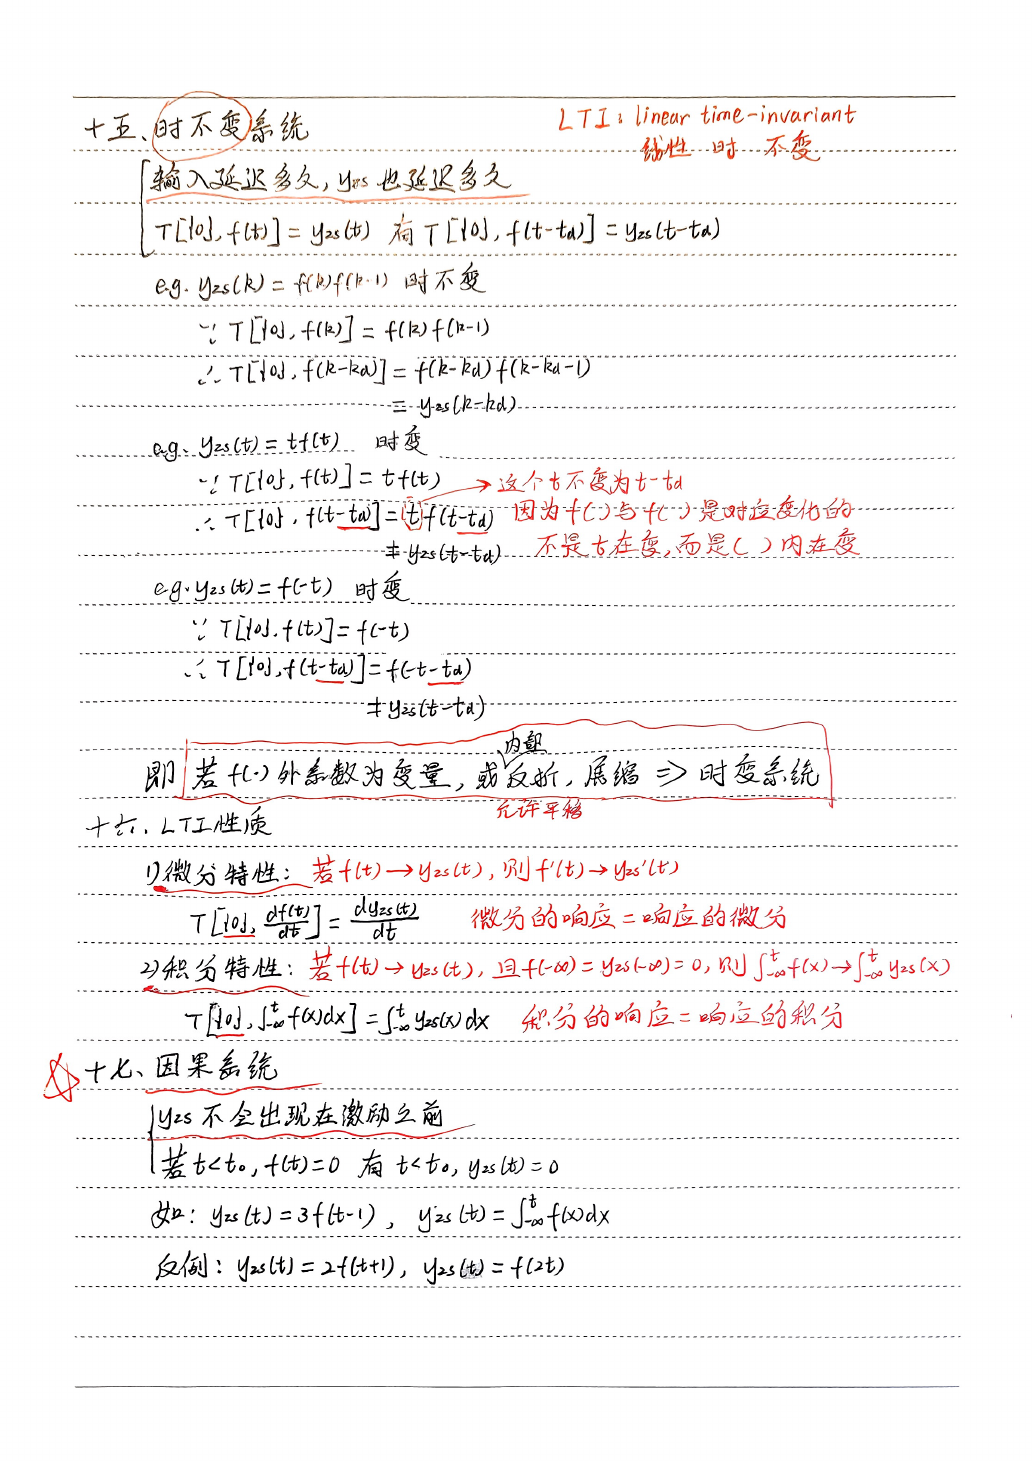 十五、时不变系统
LTI: linear time-invariant
线性 时 不变
输入延迟多久, yzs 也延迟多久
T[{0}, f(t)] = yzs(t) 有 T[{0}, f(t-td)] = yzs(t-td)
e.g. yzs(k) = f(k)f(k-1) 时不变
∵ T[{0}, f(k)] = f(k)f(k-1)
∴ T[{0}, f(k-kd)] = f(k-kd)f(k-kd-1)
= yzs(k-kd)
e.g. yzs(t) = tf(t) 时变
∵ T[{0}, f(t)] = tf(t) → 这个t不变为t-td
∴ T[{0}, f(t-td)] = t f(t-td) 因为f( )与f( )是对应变化的
≠ yzs(t-td) 不是t在变,而是( )内在变
e.g. yzs(t) = f(-t) 时变
∵ T[{0}, f(t)] = f(-t)
∴ T[{0}, f(t-td)] = f(-t-td)
≠ yzs(t-td)
内部
即 若f(·)外系数为变量, 或反折, 展缩 => 时变系统
允许平移
十六、LTI性质
1)微分特性: 若f(t)→yzs(t), 则f'(t)→yzs'(t)
T[{0}, df(t)/dt] = dyzs(t)/dt 微分的响应=响应的微分
2)积分特性: 若f(t)→yzs(t), 且f(-∞)=yzs(-∞)=0, 则∫_{-∞}^{t}f(x)→∫_{-∞}^{t}yzs(x)
T[{0}, ∫_{-∞}^{t}f(x)dx] = ∫_{-∞}^{t}yzs(x)dx 积分的响应=响应的积分
十七、因果系统
yzs不会出现在激励之前
若t<t₀, f(t)=0 有t<t₀, yzs(t)=0
如: yzs(t)=3f(t-1), yzs(t)=∫_{-∞}^{t}f(x)dx
反例: yzs(t)=2f(t+1), yzs(t)=f(2t)